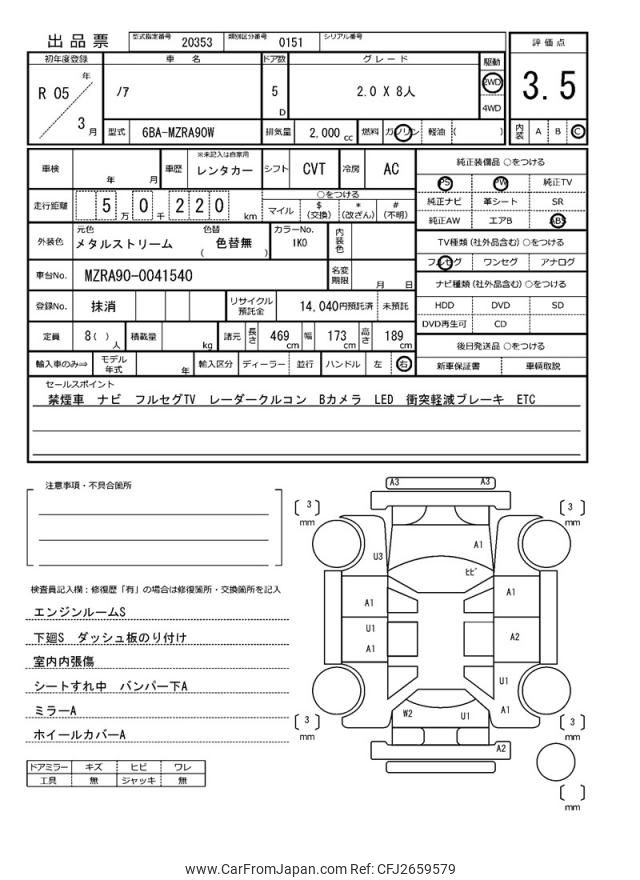 出品票
型式指定番号 20353 類別区分番号 0151 シリアル番号
評価点
3.5
初年度登録 車名 ドア数 グレード 駆動
R 05 年 3 月
ノア
5 D
2.0 X 8人
2WD
4WD
型式 6BA-MZRA90W 排気量 2,000 cc 燃料 ガソリン 軽油 ( )
内装 A B C
車検 年 月 車歴 ※未記入は自家用 レンタカー シフト CVT 冷房 AC
純正装備品 ○をつける
PS PW 純正TV
純正ナビ 革シート SR
純正AW エアB ABS
走行距離 5 万 0 千 2 2 0 km
○をつける
マイル $ (交換) * (改ざん) # (不明)
TV種類 (社外品含む) ○をつける
フルセグ ワンセグ アナログ
外装色 元色 メタルストリーム 色替 ( 色替無 ) カラーNo. 1K0 内装色
車台No. MZRA90-0041540 名変期限 月 日
ナビ種類 (社外品含む) ○をつける
HDD DVD SD
DVD再生可 CD
登録No. 抹消 リサイクル預託金 14,040円預託済 未預託
定員 8( ) 人 積載量 kg 諸元 長さ 469 cm 幅 173 cm 高さ 189 cm
後日発送品 ○をつける
新車保証書 車輌取説
輸入車のみ⇒ モデル年式 年 輸入区分 ディーラー 並行 ハンドル 左 右
セールスポイント
禁煙車 ナビ フルセグTV レーダークルコン Bカメラ LED 衝突軽減ブレーキ ETC
注意事項・不具合箇所
検査員記入欄：修復歴「有」の場合は修復箇所・交換箇所を記入
エンジンルームS
下廻S ダッシュ板のり付け
室内内張傷
シートすれ中 バンパー下A
ミラーA
ホイールカバーA
ドアミラー キズ ヒビ ワレ
工具 無 ジャッキ 無
A3 A3
3 mm
3 mm
U3
A1
ヒビ
A1
A1
U1
A1
A2
U1
A1
W2
U1
A2
3 mm
3 mm
mm
www.CarFromJapan.com Ref: CFJ2659579